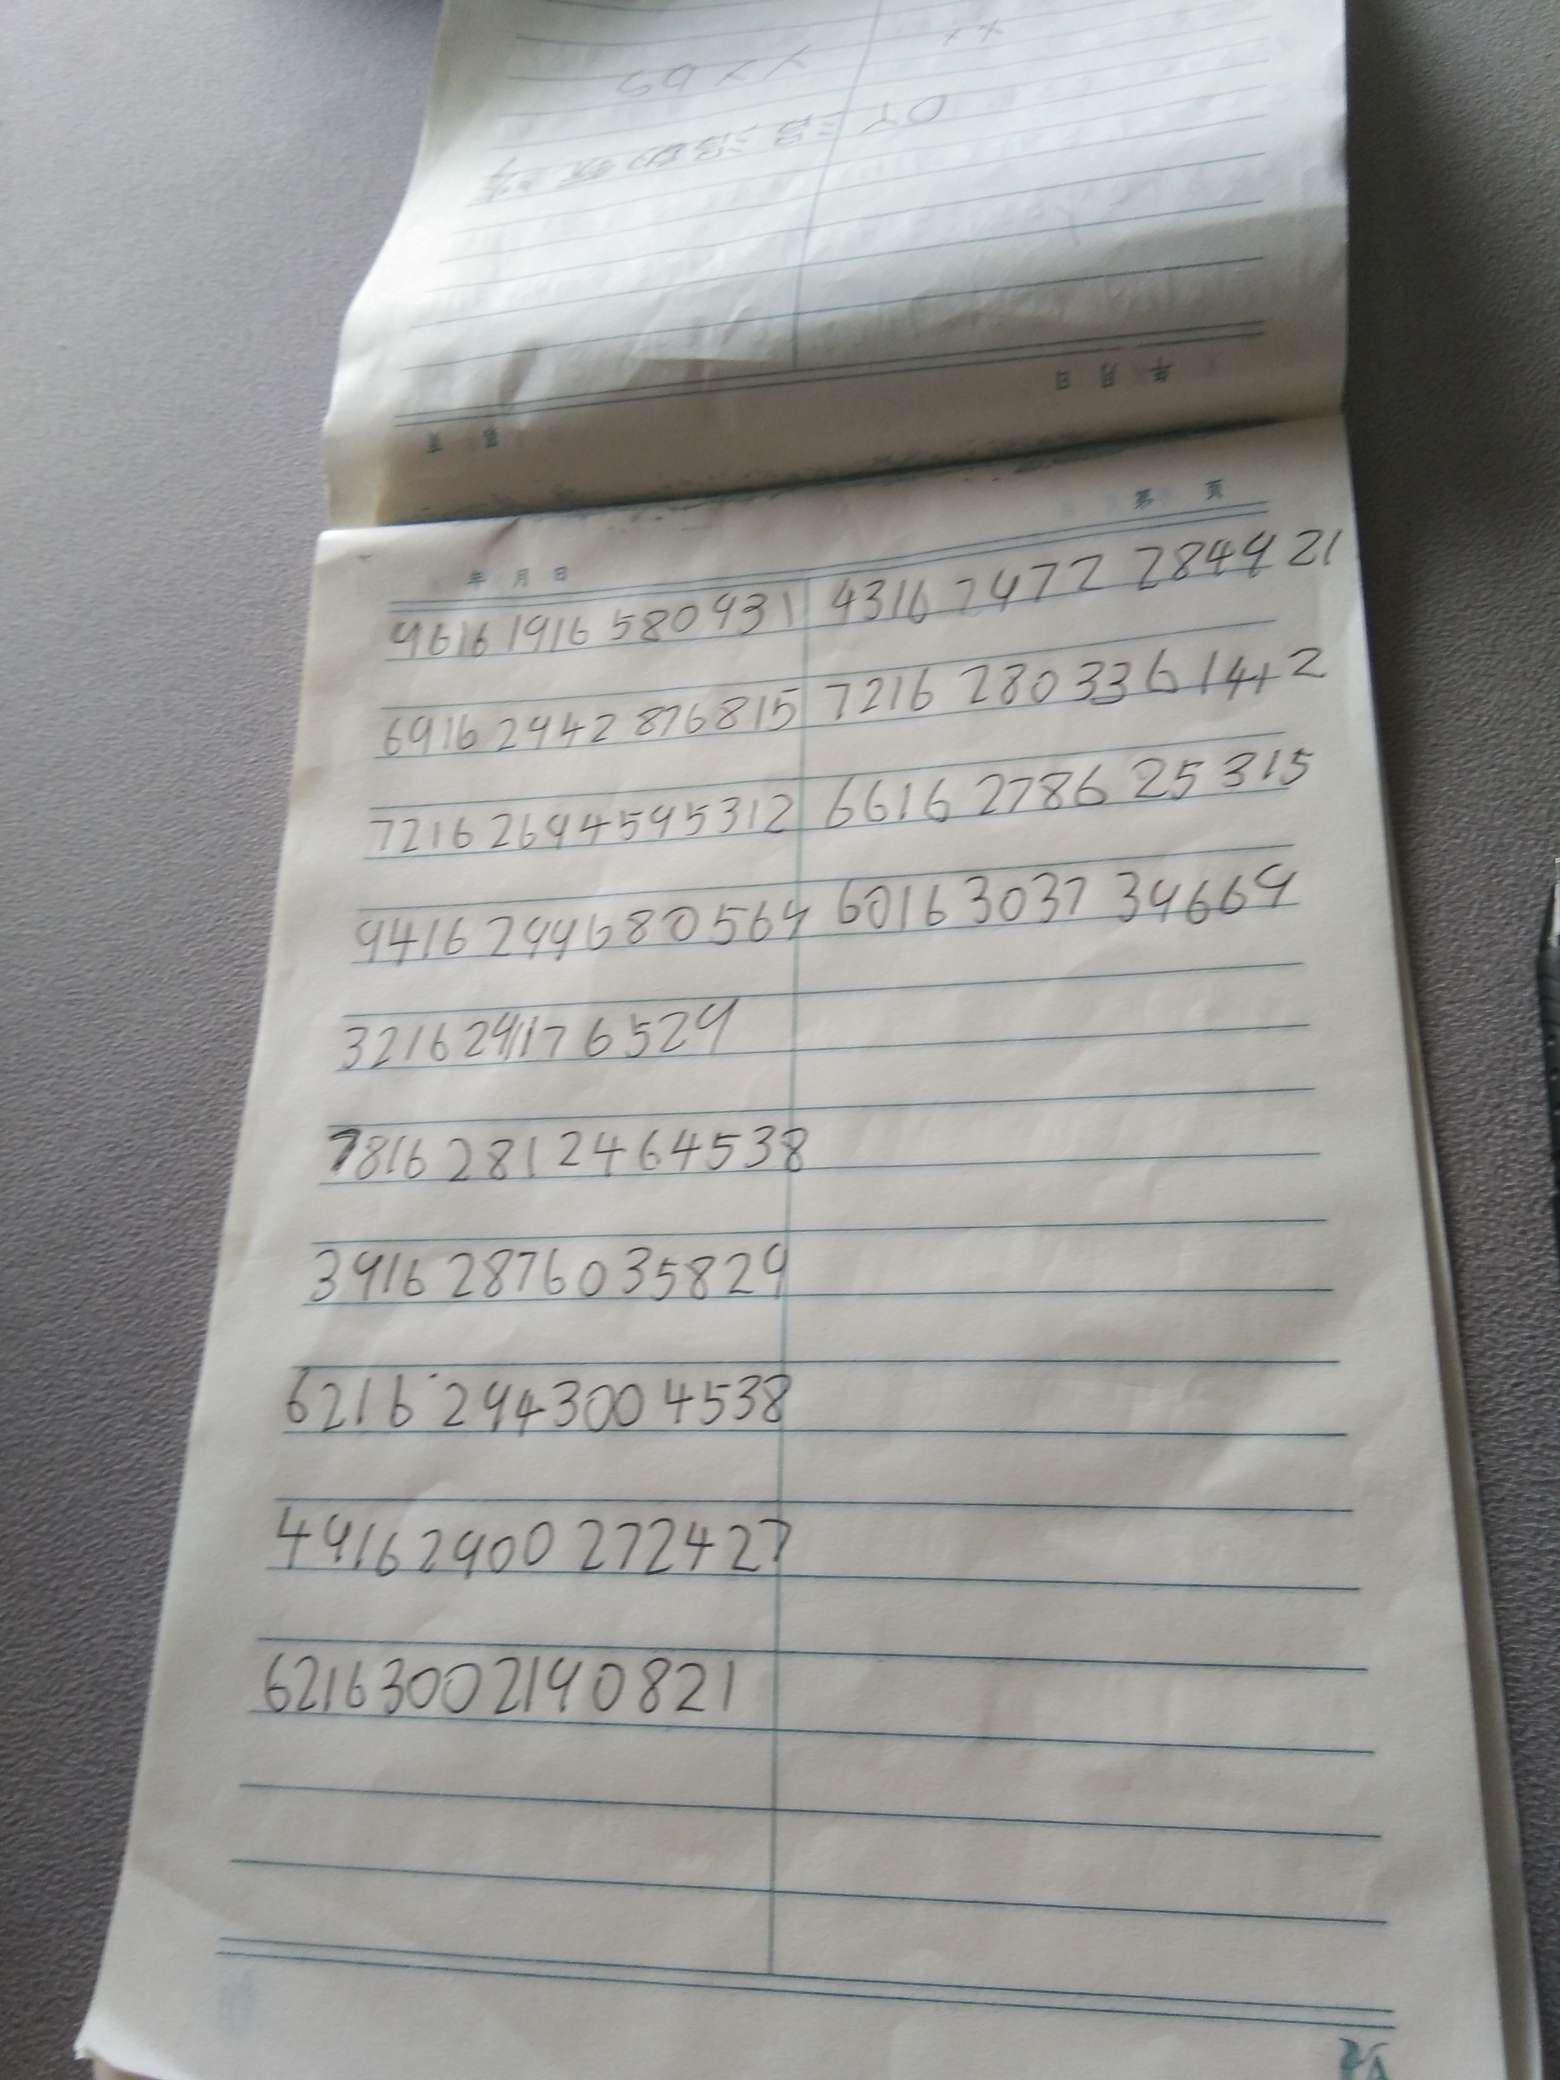 第 页
年 月 日
9616 1916 580931 4316 7477 2849 21
6916 2942 876815 7216 280 336 1442
7216 2694595312 6616 2786 25 315
9416 2994680564 6016 3037 39669
3216 29117 6529
7816 2812464538
3916 2876035829
6216 2943004538
4916 2900 272427
6216 3002190821